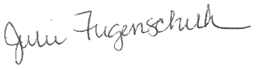 Julie Fugenschuh